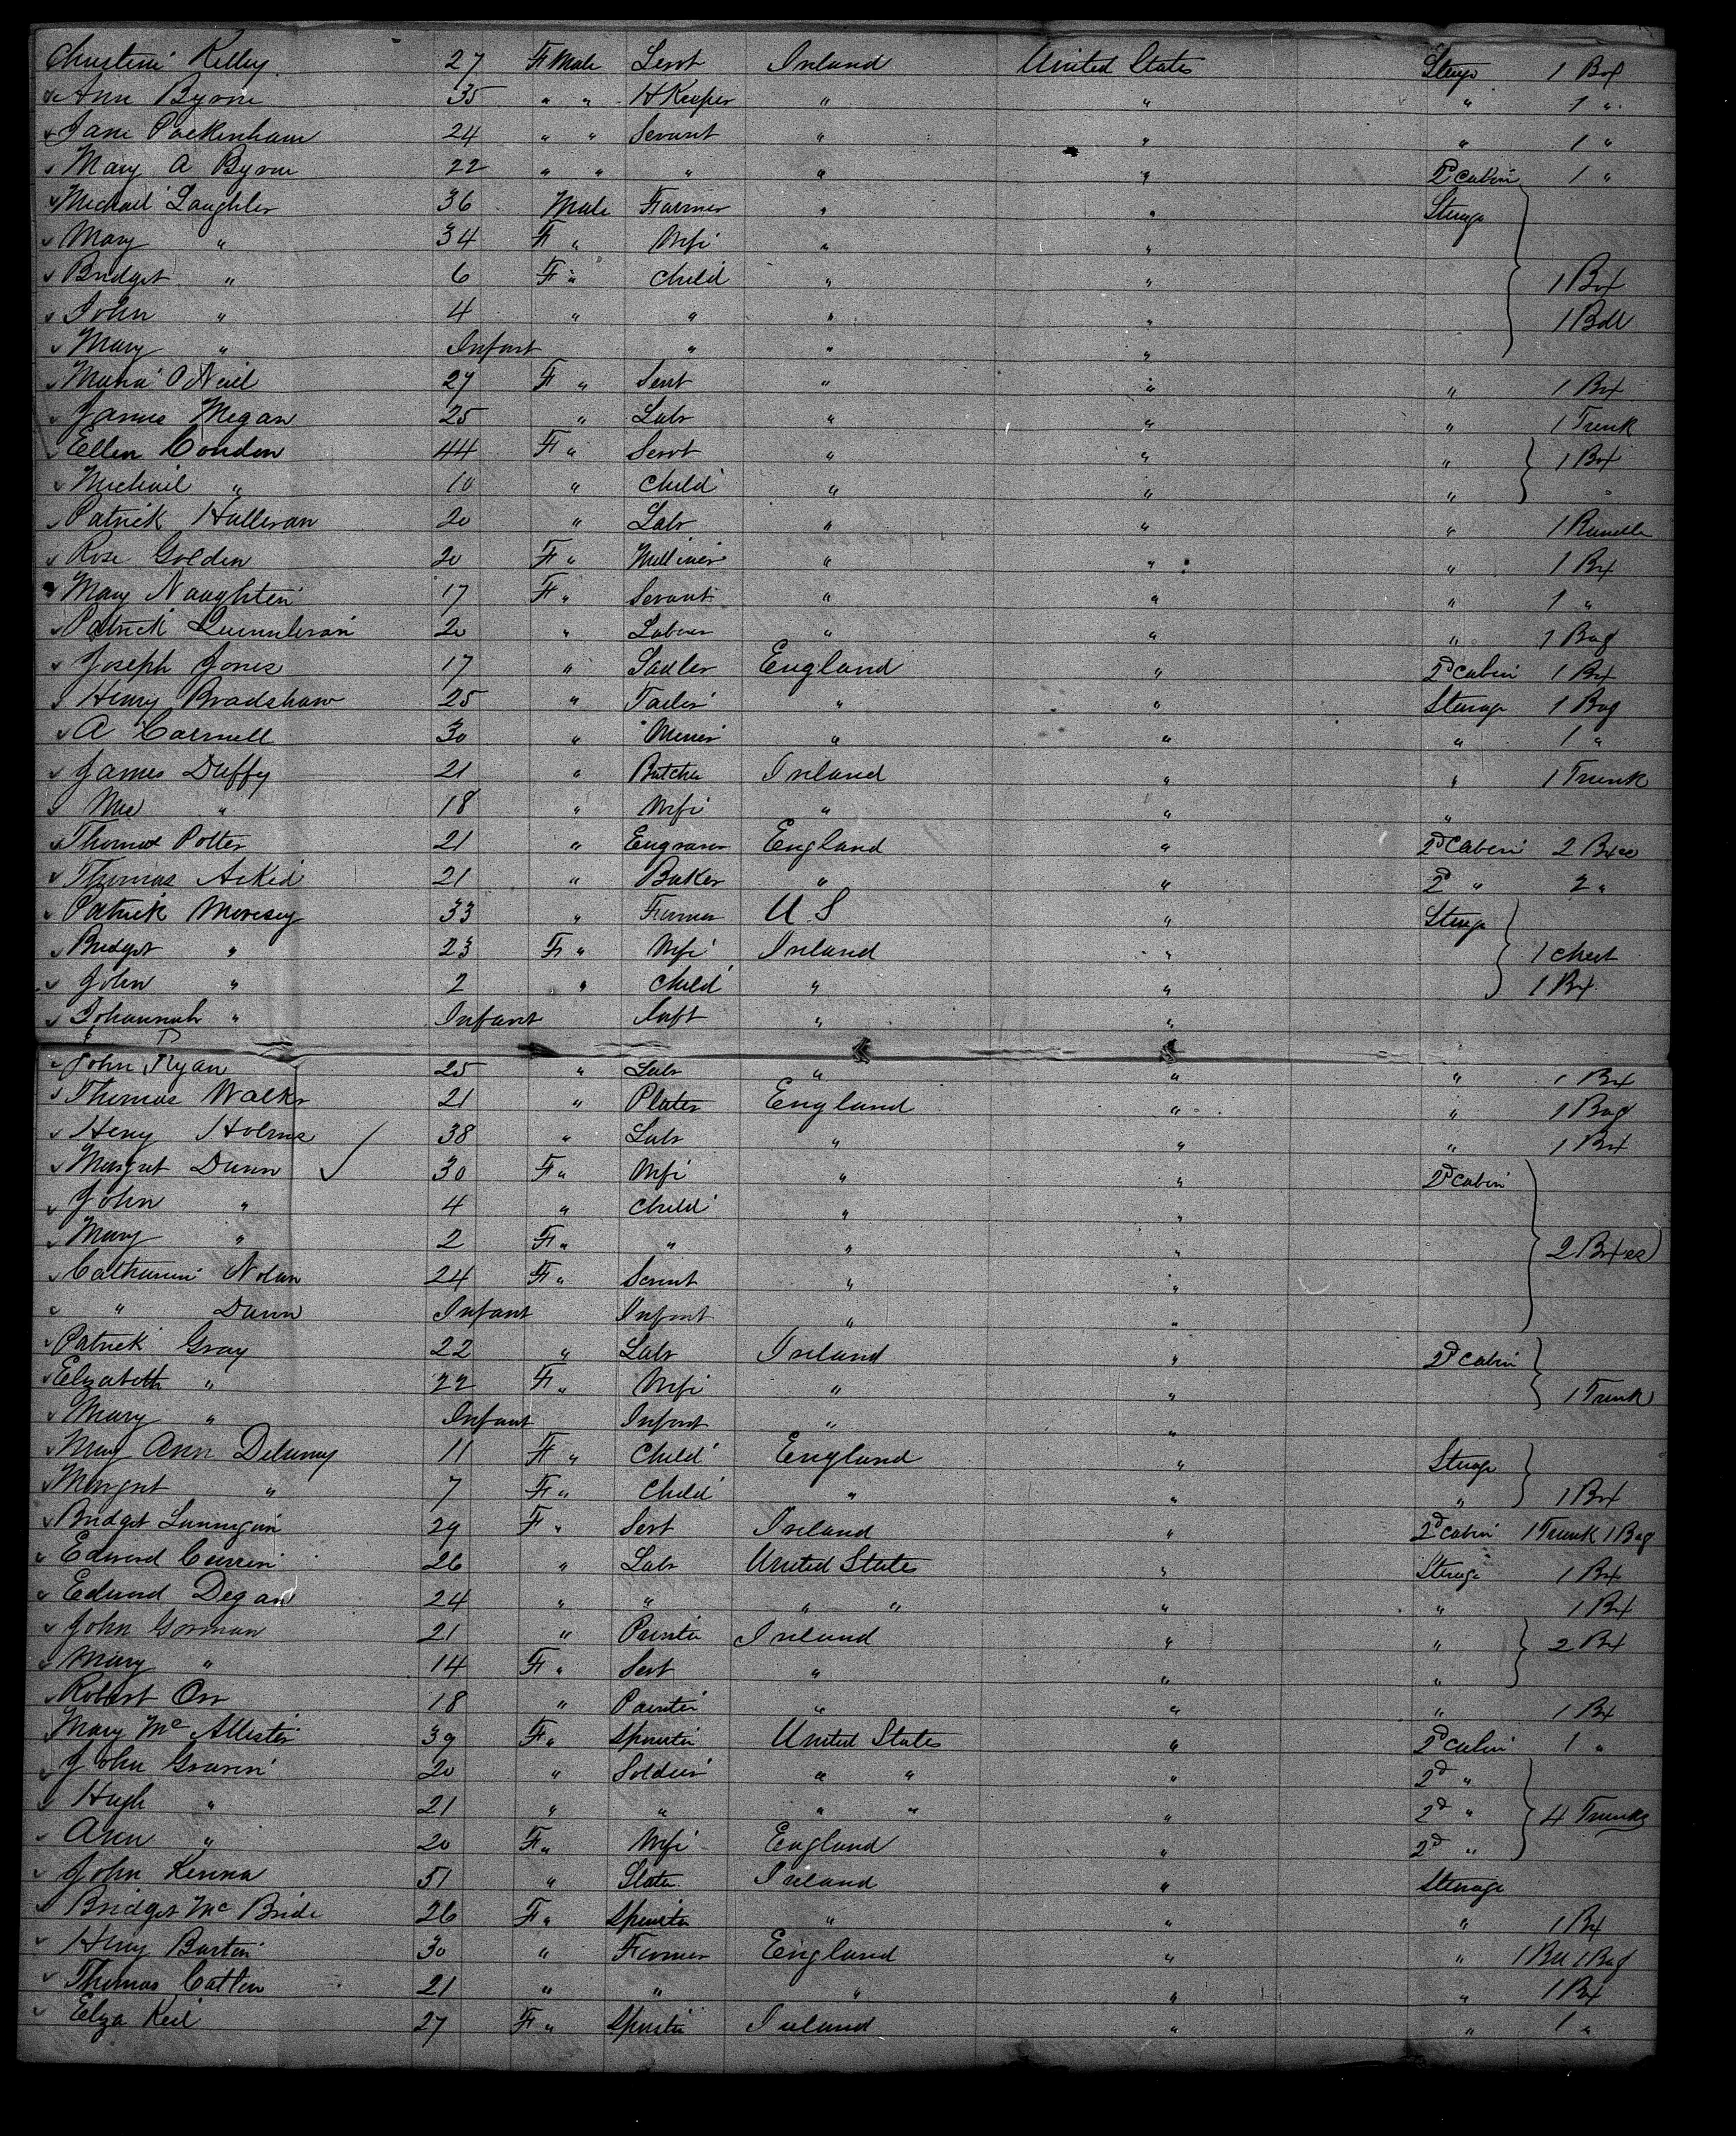 Christine Kelley 27 F Male Servt Ireland United States Sterge 1 Box
Ann Byrne 35 " " H Keeper " " " 1 "
Jane Packenham 24 " " Servant " " " 1 "
Mary A Byrne 22 " " " " " 2d Cabin 1 "
Michail Laughler 36 Male Farmer " " Sterge
Mary " 34 F " Wife " "
Bridget " 6 F " Child " " 1 Box
John " 4 " " " " 1 Bdl
Mary " Infant " " "
Maria O Neil 27 F " Servt " " " 1 Box
James Megan 25 " Labr " " " 1 Trunk
Ellen Condon 44 F " Servt " " " 1 Box
Michail " 10 " Child " " "
Patrick Halleran 20 " Labr " " " 1 Bundle
Rose Golden 20 F " Milliner " " " 1 Box
Mary Naughten 17 F " Servant " " " 1 "
Patrick 20 " Laborer " " " 1 Bag
Joseph Jones 17 " Sadler England " 2d Cabin 1 Box
Henry Bradshaw 25 " Tailor " " Sterage 1 Bag
A Carnell 30 " Miner " " " 1 "
James Duffy 21 " Butcher Ireland " " 1 Trunk
Mrs " 18 " Wife " " "
Thomas Potter 21 " Engraver England " 2d Cabin 2 Boxes
Thomas Acked 21 " Baker " " 2d " 2 "
Patrick Moresey 33 " Farmer U S " Sterge
Bridget " 23 F " Wife Ireland " 1 Chest
John " 2 " Child " " 1 Box
Johannah " Infant Inft " "
John Ryan 25 " Labr " " " 1 Box
Thomas Walker 21 " Plater England " " 1 Bag
Heny Holms 38 " Labr " " " 1 Box
Margret Dunn 30 F " Wife " " 2d Cabin
John " 4 " Child " "
Mary " 2 F " " " " 2 Boxes
Catharine Nolan 24 F " Servnt " "
" Dunn Infant Infant " "
Patrick Gray 22 " Labr Ireland " 2d Cabin
Elizabeth " 22 F " Wife " " 1 Trunk
Mary " Infant Infant " "
Mary Ann Delaney 11 F " Child England " Sterage
Margret " 7 F " Child " " " 1 Box
Bridget Lannigan 29 F " Servt Ireland " 2d Cabin 1 Trunk 1 Bag
Edward Curren 26 " Labr United States " Sterage 1 Box
Edward Degan 24 " " " " " " 1 Box
John Gorman 21 " Printer Ireland " " 2 Box
Mary " 14 F " Servt " " "
Robert Orr 18 " Painter " " " 1 Box
Mary Mc Allister 39 F " Spinster United States " 2d Cabin 1 "
John Graven 20 " Soldier " " " 2d "
Hugh " 21 " " " " " 2d " 4 Trunks
Ann " 20 F " Wife England " 2d "
John Kenna 51 " Slater Ireland " Sterage
Bridget Mc Bride 26 F " Spinster " " " 1 Box
Heny Barten 30 " Farmer England " " 1 Box 1 Bag
Thomas Catlen 21 " " " " " 1 Box
Elza Keil 27 F " Spinster Ireland " " 1 "